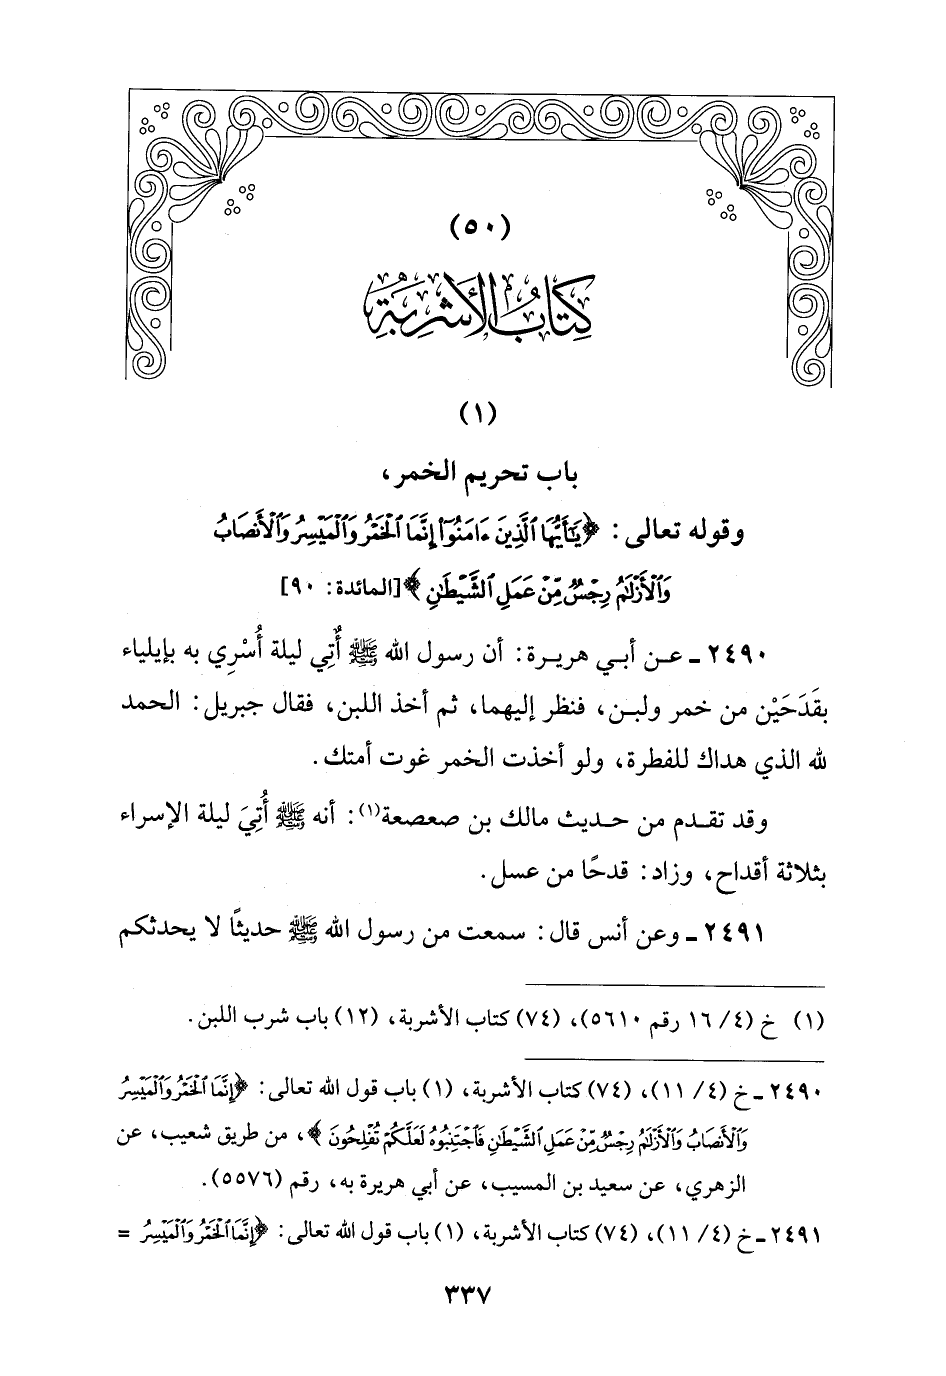 (٥٠)
كِتَابُ الأَشْرِبَةِ
(١)
باب تحريم الخمر،
وقوله تعالى: ﴿يَٰٓأَيُّهَا ٱلَّذِينَ ءَامَنُوٓا۟ إِنَّمَا ٱلْخَمْرُ وَٱلْمَيْسِرُ وَٱلْأَنصَابُ
وَٱلْأَزْلَٰمُ رِجْسٌ مِّنْ عَمَلِ ٱلشَّيْطَٰنِ﴾ [المائدة: ٩٠]
٢٤٩٠ ـ عن أبي هريرة: أن رسول الله ﷺ أُتِي ليلة أُسْرِي به بإيلياء
بقَدَحَيْن من خمر ولبن، فنظر إليهما، ثم أخذ اللبن، فقال جبريل: الحمد
لله الذي هداك للفطرة، ولو أخذت الخمر غوت أمتك.
وقد تقدم من حديث مالك بن صعصعة(١): أنه ﷺ أُتِيَ ليلة الإسراء
بثلاثة أقداح، وزاد: قدحًا من عسل.
٢٤٩١ ـ وعن أنس قال: سمعت من رسول الله ﷺ حديثًا لا يحدثكم
(١) خ (٤/ ١٦ رقم ٥٦١٠)، (٧٤) كتاب الأشربة، (١٢) باب شرب اللبن.
٢٤٩٠ ـ خ (٤/ ١١)، (٧٤) كتاب الأشربة، (١) باب قول الله تعالى: ﴿إِنَّمَا ٱلْخَمْرُ وَٱلْمَيْسِرُ
وَٱلْأَنصَابُ وَٱلْأَزْلَٰمُ رِجْسٌ مِّنْ عَمَلِ ٱلشَّيْطَٰنِ فَٱجْتَنِبُوهُ لَعَلَّكُمْ تُفْلِحُونَ﴾، من طريق شعيب، عن
الزهري، عن سعيد بن المسيب، عن أبي هريرة به، رقم (٥٥٧٦).
٢٤٩١ ـ خ (٤/ ١١)، (٧٤) كتاب الأشربة، (١) باب قول الله تعالى: ﴿إِنَّمَا ٱلْخَمْرُ وَٱلْمَيْسِرُ =
٣٣٧